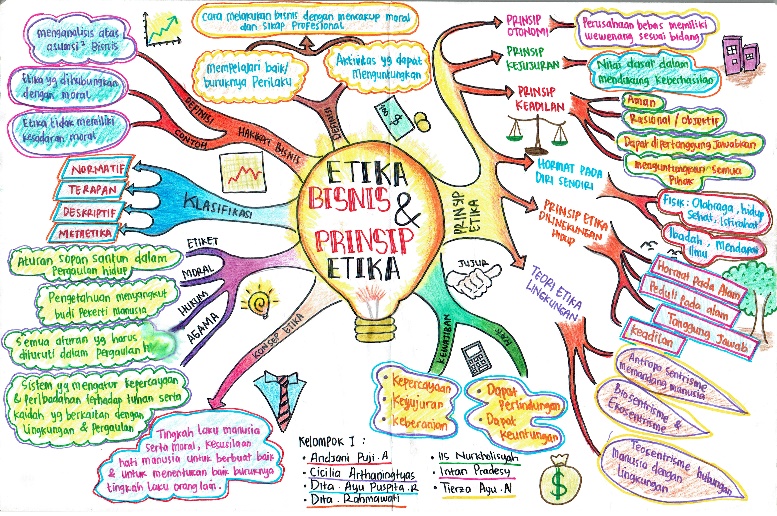 ETIKA
BISNIS
&
PRINSIP
ETIKA
DEFINISI
Cara melakukan bisnis dengan mencakup moral
dan sikap Profesional
Mempelajari baik/
buruknya Perilaku
Aktivitas yg dapat
Menguntungkan
HAKIKAT BISNIS
DEFINISI
menganalisis atas
asumsi² Bisnis
CONTOH
Etika yg dihubungkan
dengan moral
Etika tidak memiliki
kesadaran moral
KLASIFIKASI
NORMATIF
TERAPAN
DESKRIPTIF
METAETIKA
ETIKET
Aturan sopan santun dalam
Pergaulan hidup
MORAL
Pengetahuan menyangkut
budi Pekerti manusia
HUKUM
Semua aturan yg harus
dituruti dalam Pergaulan h
AGAMA
Sistem yg mengatur kepercayaan
& Peribadahan terhadap tuhan serta
kaidah yg berkaitan dengan
Lingkungan & Pergaulan
KONSEP ETIKA
Tingkah laku manusia
serta moral, kesusilaan
hati manusia untuk berbuat baik
& untuk menentukan baik buruknya
tingkah laku orang lain.
PRINSIP ETIKA
PRINSIP
OTONOMI
Perusahaan bebas memiliki
wewenang sesuai bidang
PRINSIP
KEJUJURAN
Nilai dasar dalam
mendukung keberhasilan
PRINSIP
KEADILAN
Aman
Rasional / Objektif
Dapat dipertanggung Jawabkan
menguntungkan semua
Pihak
HORMAT PADA
DIRI SENDIRI
Fisik : Olahraga, hidup
Sehat, Istirahat
Ibadah, Mendapat
Ilmu
PRINSIP ETIKA
DILINGKUNGAN
Hidup
Hormat Pada Alam
Peduli Pada alam
Tanggung Jawab
Keadilan
TEORI ETIKA
LINGKUNGAN
Antropo sentrisme
memandang manusia
Biosentrisme &
Ekosentrisme
Teosentrisme hubungan
Manusia dengan
Lingkungan
JUJUR
KEWAJIBAN
• Kepercayaan
• Kejujuran
• Keberanian
HAK
• Dapat
Perlindungan
• Dapat
Keuntungan
Kelompok I :
• Andjani Puji. A
• Cicilia Arthaningtyas
• Dita. Ayu Puspita. R
• Dita. Rahmawati
• Iis Nurkholisyah
• Intan Pradesy
• Tierza Ayu. N
$